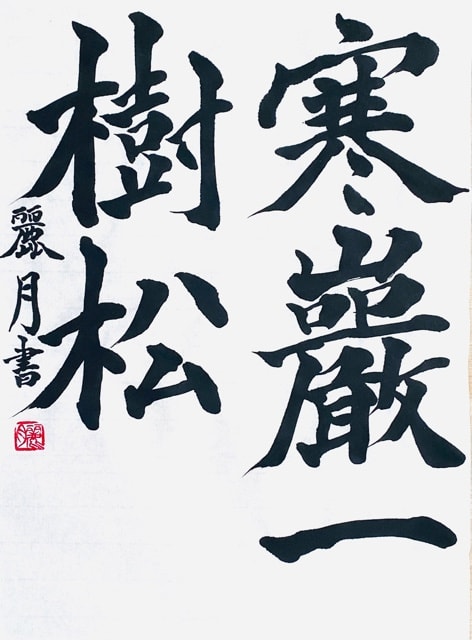 寒巖一
樹松
麗月書